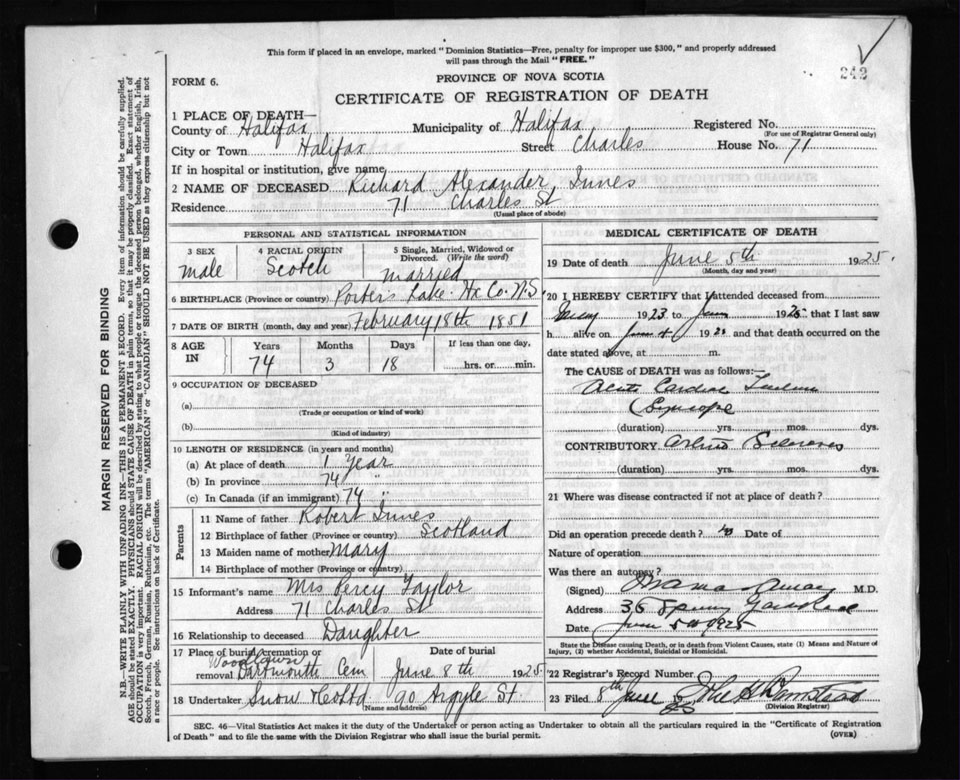 This form if placed in an envelope, marked "Dominion Statistics—Free, penalty for improper use $300," and properly addressed
will pass through the Mail "FREE."
242
FORM 6.
PROVINCE OF NOVA SCOTIA
CERTIFICATE OF REGISTRATION OF DEATH
1 PLACE OF DEATH—
County of Halifax Municipality of Halifax Registered No.
(For use of Registrar General only)
City or Town Halifax Street Charles House No. 71
If in hospital or institution, give name
2 NAME OF DECEASED Richard Alexander Innes
Residence 71 Charles St
(Usual place of abode)
PERSONAL AND STATISTICAL INFORMATION
3 SEX male
4 RACIAL ORIGIN Scotch
5 Single, Married, Widowed or Divorced. (Write the word) married
6 BIRTHPLACE (Province or country) Porters Lake Hx Co. N.S.
7 DATE OF BIRTH (month, day and year) February 18th 1851
8 AGE IN Years Months Days If less than one day,
74 3 18 hrs. or min.
9 OCCUPATION OF DECEASED
(a)
(Trade or occupation or kind of work)
(b)
(Kind of industry)
10 LENGTH OF RESIDENCE (in years and months)
(a) At place of death 1 Year
(b) In province 74 "
(c) In Canada (if an immigrant) 74 "
Parents
11 Name of father Robert Innes
12 Birthplace of father (Province or country) Scotland
13 Maiden name of mother Mary
14 Birthplace of mother (Province or country)
15 Informant's name Mrs Percy Taylor
Address 71 Charles St
16 Relationship to deceased Daughter
17 Place of burial, cremation or removal Woodlawn Dartmouth Cem
Date of burial June 8th 1925
18 Undertaker Snow & Co Ltd 90 Argyle St
(Name and address)
MEDICAL CERTIFICATE OF DEATH
19 Date of death June 5th 1925.
(Month, day and year)
20 I HEREBY CERTIFY that I attended deceased from
1923 to June 1925 that I last saw
h alive on June 4 1925 and that death occurred on
date stated above, at m.
The CAUSE of DEATH was as follows:—
Acute Cardiac
Syncope
(duration) yrs. mos. dys.
CONTRIBUTORY
(duration) yrs. mos. dys.
21 Where was disease contracted if not at place of death?
Did an operation precede death? Date of
Nature of operation
Was there an autopsy?
(Signed) M.D.
Address 35 Spring Garden Road
Date June 5th 1925
State the Disease causing Death, or in death from Violent Causes, state (1) Means and Nature of
Injury, (2) whether Accidental, Suicidal or Homicidal.
22 Registrar's Record Number
23 Filed 8th June 25
(Division Registrar)
SEC. 46—Vital Statistics Act makes it the duty of the Undertaker or person acting as Undertaker to obtain all the particulars required in the "Certificate of Registration
of Death" and to file the same with the Division Registrar who shall issue the burial permit.
(OVER)
MARGIN RESERVED FOR BINDING
N.B.—WRITE PLAINLY WITH UNFADING INK—THIS IS A PERMANENT RECORD. Every item of information should be carefully supplied.
AGE should be stated EXACTLY. PHYSICIANS should STATE CAUSE OF DEATH in plain terms, so that it may be properly classified. Exact statement of
OCCUPATION is very important. RACIAL ORIGIN will be described by stating to what people or tongue the deceased person belonged, whether English, Irish,
Scotch, French, German, Russian, Ruthenian, etc. The terms "AMERICAN" or "CANADIAN" SHOULD NOT BE USED as they express citizenship but not
a race or people. See instructions on back of Certificate.